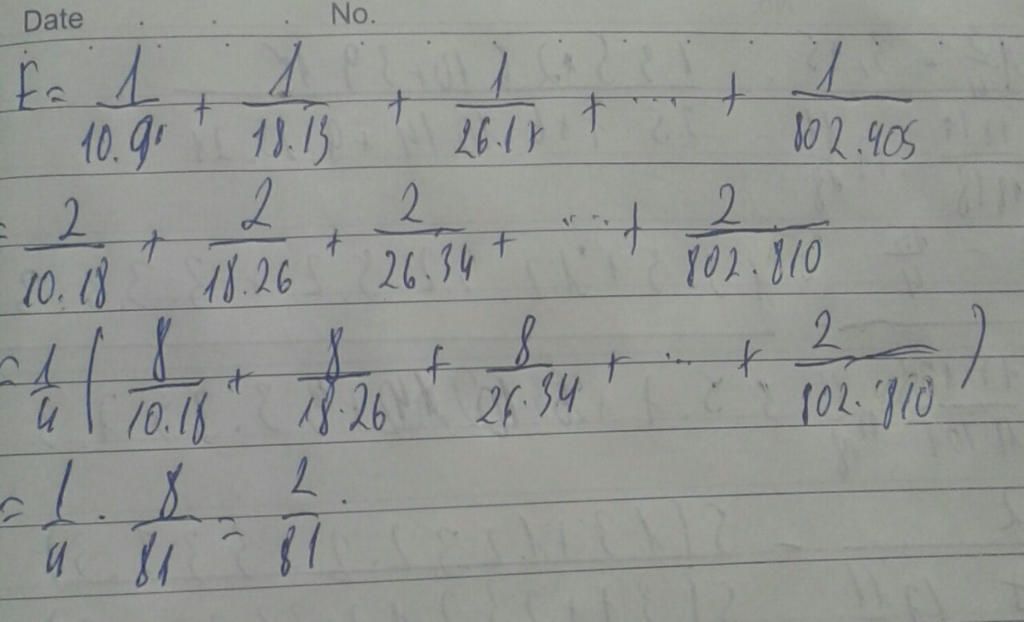 Date . . . No.
F = 1/10.9 + 1/18.13 + 1/26.17 + ... + 1/802.405
= 2/10.18 + 2/18.26 + 2/26.34 + ... + 2/802.810
= 1/4 ( 8/10.18 + 8/18.26 + 8/26.34 + ... + 2/802.810 )
= 1/4 . 8/81 = 2/81 .